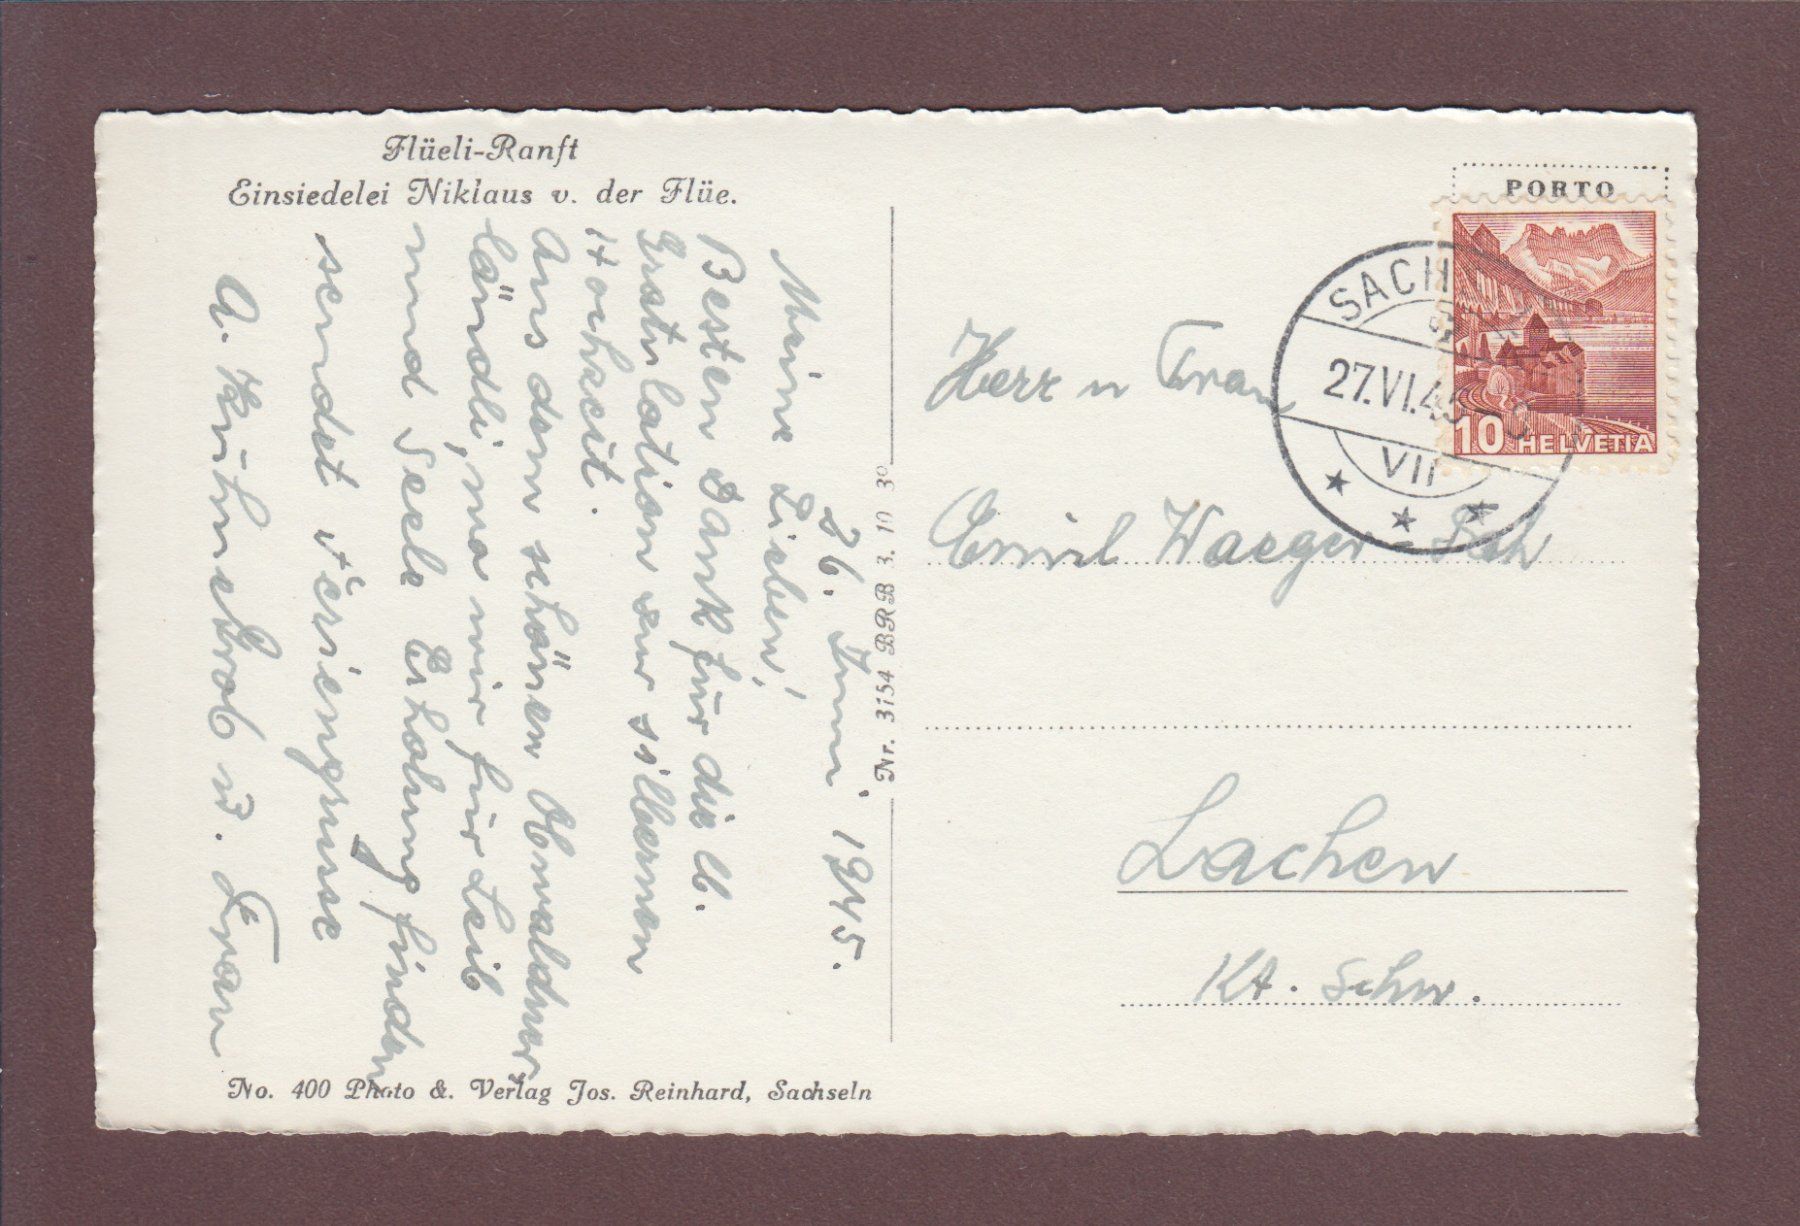 Flüeli-Ranft
Einsiedelei Niklaus v. der Flüe.
26. Juni. 1945.
Meine Lieben!
Besten Dank für die lb.
Gratulation zur silbernen
Hochzeit.
Aus dem schönen Obwaldner
ländli, wo wir für Leib
und Seele Erholung finden
sendet Feriengrüsse
A. u. Frau
No. 400 Photo &. Verlag Jos. Reinhard, Sachseln
Nr. 3154 BRB 3. 10 39
PORTO
10 HELVETIA
SACH
27.VI.45
VII
Herr u Frau
Emil Waeger
Lachen
Kt. Schw.